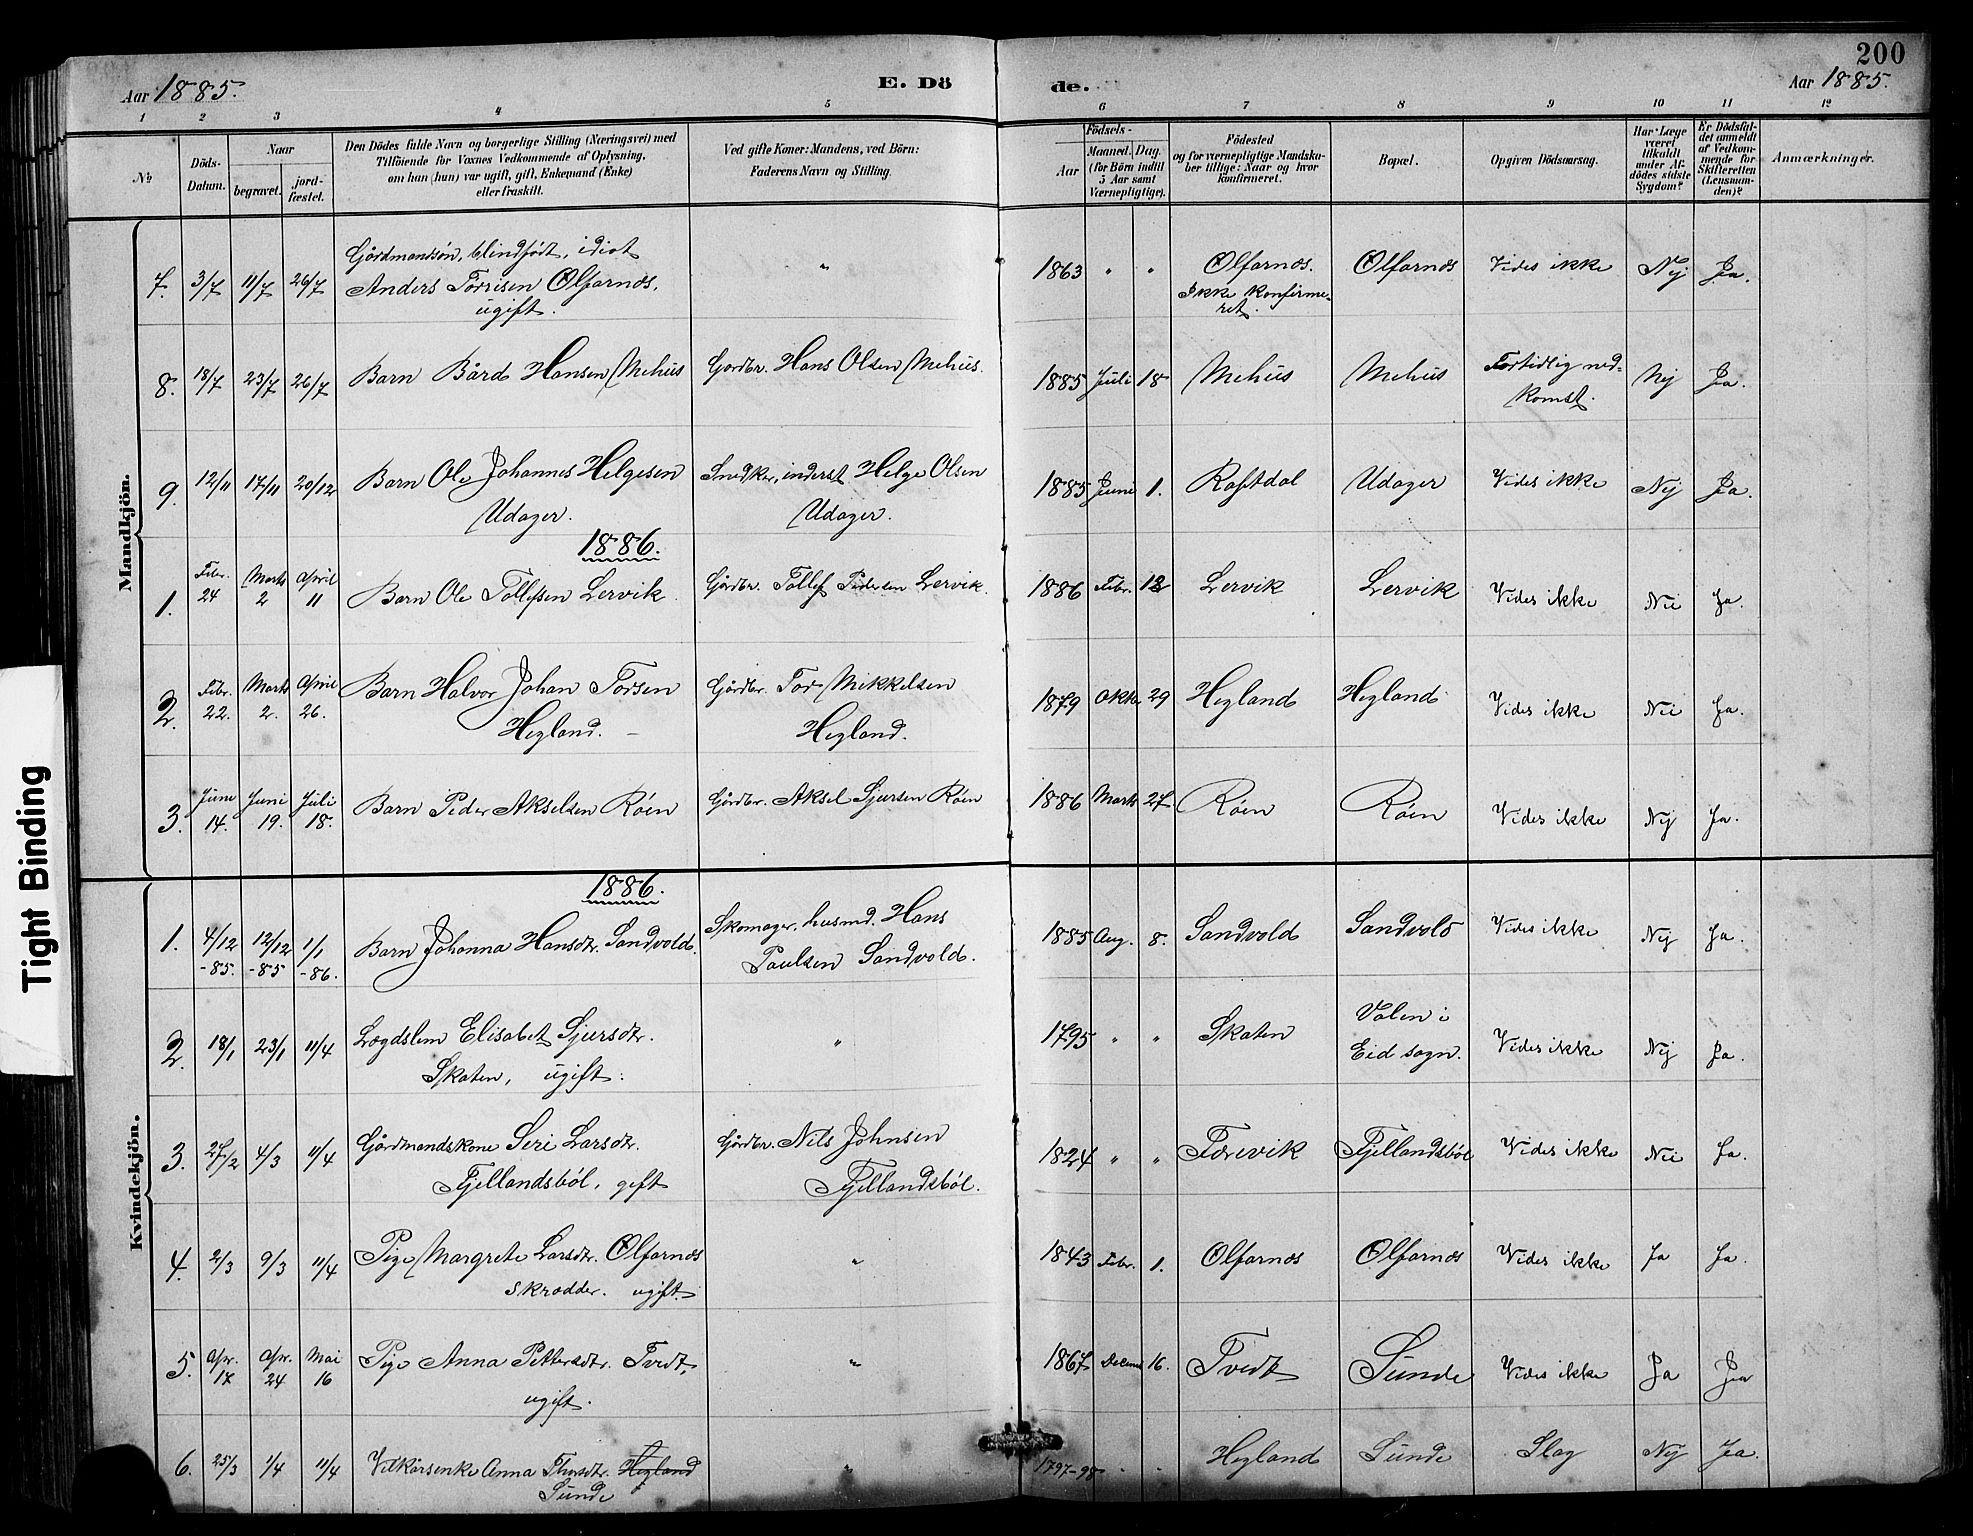 200
Aar 1885.
E. Dö
de.
Aar 1885.
1 2 3 4 5 6 7 8 9 10 11 12
No
Döds-
Datum.
Naar
begravet.
jord-
fæstet.
Den Dödes fulde Navn og borgerlige Stilling (Næringsvei) med
Tilföiende for Voxnes Vedkommende af Oplysning,
om han (hun) var ugift, gift, Enkemand (Enke)
eller fraskilt.
Ved gifte Koner: Mandens, ved Börn:
Faderens Navn og Stilling.
Födsels-
Aar
Maaned.
Dag.
(for Börn indtil
5 Aar samt
Værnepligtige).
Födested
og for værnepligtige Mandska-
ber tillige: Naar og hvor
konfirmeret.
Bopæl.
Opgiven Dödsaarsag.
Har Læge
været
tilkaldt
under Af-
dödes sidste
Sygdom?
Er Dödsfal-
det anmeldt
af Vedkom-
mende for
Skifteretten
(Lensman-
den)?
Anmærkninger.
Mandkjön.
Gårdmandsön, blindfödt, idiot
7. 3/7 11/7 26/7 Anders Torrisen Ölfarnes, " 1863 " " Ölfarnes. Ölfarnes Vides ikke Nej Ja.
ugift.
Ikke konfirme-
ret.
8. 18/7 23/7 26/7 Barn Bård Hansen Mehus Gordbr. Hans Olsen Mehus. 1885 Juli 18 Mehus Mehus Fortidlig ned- Nej Ja.
komst.
9. 12/11 17/11 20/12 Barn Ole Johannes Helgesen Snedker, inderst Helge Olsen 1885 Juni 1. Raftdal Udager Vides ikke Nej Ja.
Udager. Udager.
1886.
1. Febr. 24 Marts 2 April 11 Barn Ole Tollefsen Lervik. Gårdbr. Tollef Pedersen Lervik. 1886 Febr. 12 Lervik Lervik Vides ikke Nei Ja.
2. Febr. 22. Marts 2. April 26. Barn Halvor Johan Torsen Gårdbr. Tor Mikkelsen 1879 Oktbr 29 Hegland Hegland Vides ikke Nei Ja.
Hegland. Hegland.
3. Juni 14. Juni 19. Juli 18. Barn Peder Akselsen Röen Gårdbr. Aksel Sjursen Röen 1886 Marts 27 Röen Röen Vides ikke Nej Ja.
Kvindekjön.
1886.
1. 4/12 -85. 12/12 -85 1/1 -86. Barn Johanna Hansdtr. Sandvold. Skomager, husmd. Hans 1885 Aug. 8. Sandvold Sandvold Vides ikke Nej Ja.
Paulsen Sandvold.
2. 18/1 23/1 11/4 Lægdslem Elisabet Sjursdtr. " 1795 " " Skaten Valen i Vides ikke Nej Ja.
Skaten, ugift. Eid sogn.
3. 27/2 4/3 11/4 Gårdmandskone Seri Larsdtr. Gårdbr. Nils Johnsen 1824 " " Torevik Fjellandsböl Vides ikke Nei Ja.
Fjellandsböl, gift Fjellandsböl.
4. 2/3 9/3 11/4 Pige Margrete Larsdtr. Ölfarnes " 1843 Febr. 1. Ölfarnes Ölfarnes Vides ikke Ja Ja.
skrædder. ugift.
5. Apr. 17 Apr. 24 Mai 16 Pige Anna Pettersdtr. Tvedt, " 1867 Decem 16. Tvedt Sunde Vides ikke Ja Ja
ugift.
6. 25/3 1/4 11/4 Vilkårsenke Anna Thorsdtr. Hegland " 1797-98 " " Hegland Sunde Slag Nej Ja.
Sunde
Tight Binding